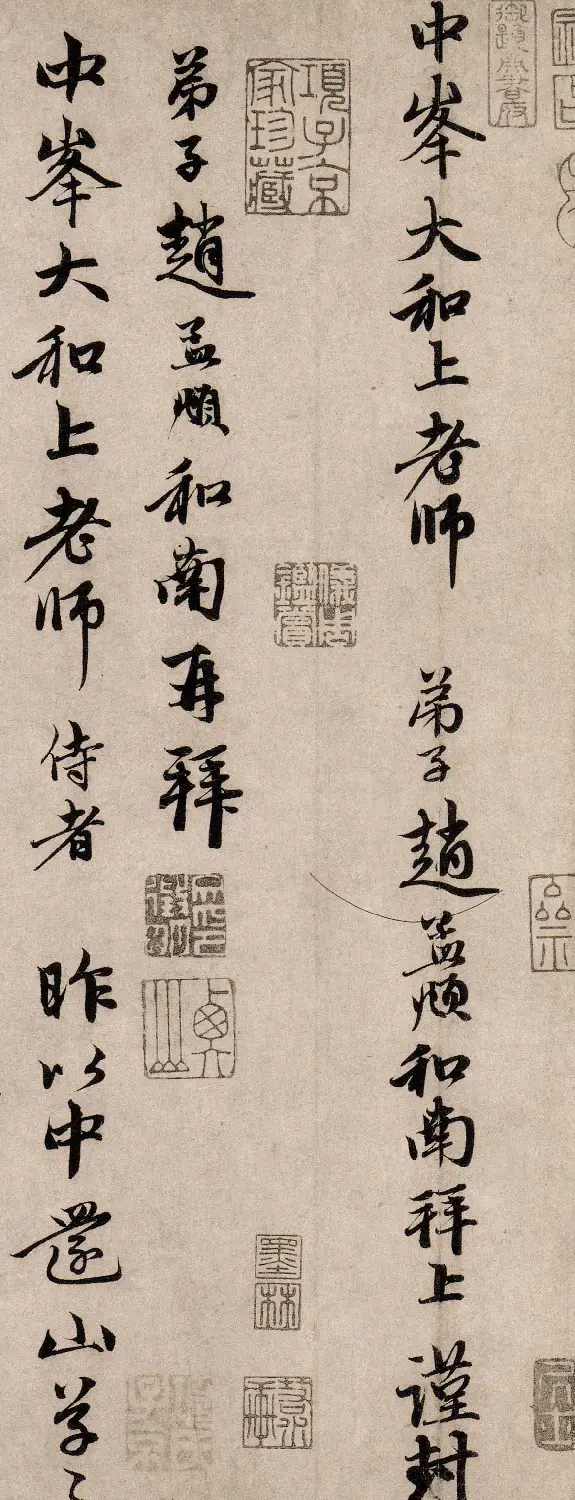 中峯大和上老师　弟子趙孟頫和南拜上　謹封
弟子趙孟頫和南再拜
中峯大和上老师　侍者　昨以中還山草々
項子京家珍藏
墨林